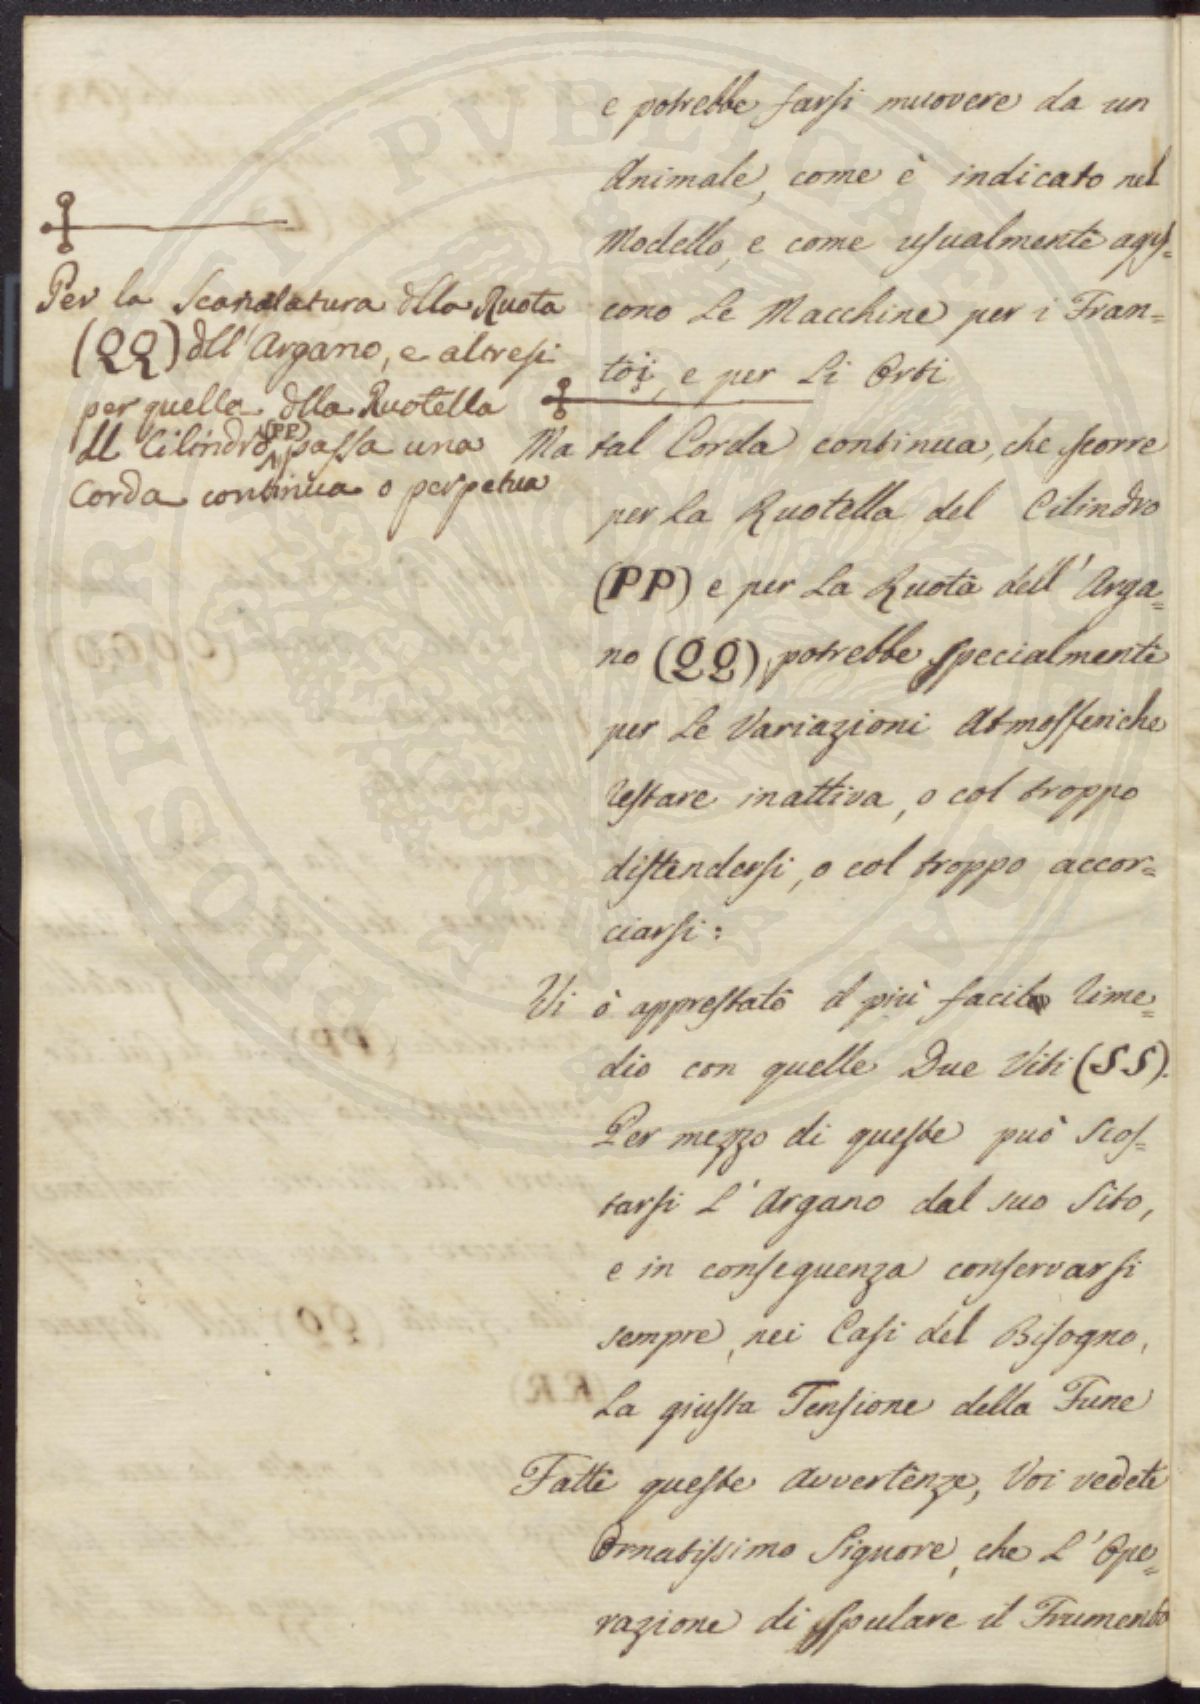 e potrebbe farsi muovere da un
Animale, come è indicato nel
Modello, e come usualmente agis-
cono Le Macchine per i Fran=
toi, e per Li Orti
Per la Scanalatura dlla Ruota
(QQ) dll'Argano, e altresi
per quella dlla Ruotella
dl Cilindro (PP) passa una
Corda continua o perpetua
Ma tal Corda continua, che scorre
per La Ruotella del Cilindro
(PP) e per La Ruota dell'Arga=
no (QQ), potrebbe specialmente
per Le Variazioni Atmosferiche
restare inattiva, o col troppo
distendersi, o col troppo accor=
ciarsi:
Vi è apprestato il più facile rime=
dio con quelle Due Viti (SS).
Per mezzo di queste può scos-
tarsi L'Argano dal suo Sito,
e in conseguenza conservarsi
sempre, nei Casi del Bisogno,
La giusta Tensione della Fune
Fatte queste avvertenze, Voi vedete
Ornatissimo Signore, che L'Ope=
razione di spulare il Frumento
PROSPERITATI PVBLICAE AVGENDAE